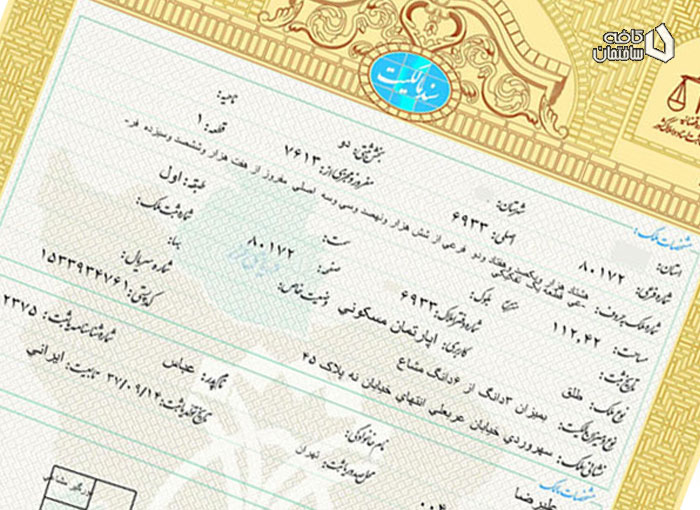 کافه ساختمان
سند مالکیت
مشخصات ملک:
استان: شهرستان: بخش ثبتی: دو ناحیه:
شماره فرعی: ۸۰۱۷۲ اصلی: ۶۹۳۳ مفروز و مجزی از: ۷۶۱۳ قطعه: ۱
شماره ملک بحروف: هشتاد هزار و یکصد و هفتاد و دو فرعی از شش هزار و نهصد و سی و سه اصلی مفروز از هفت هزار و ششصد و سیزده فر
عی قطعه یک تفکیکی
مساحت: ۱۱۲.۴۲ بلوک: سمت: طبقه: اول
تاریخ ثبت: شماره دفتر املاک: ۶۹۳۳ صفحه: ۸۰۱۷۲ بها: شماره ثبت ملک:
نوع ملک: طلق کاربری: اپارتمان مسکونی وضعیت خاص: شماره سریال:
نوع و میزان مالکیت: بمیزان ۳دانگ از ۶دانگ مشاع کد پستی: ۱۵۳۳۹۳۴۷۶۱
نشانی ملک: سهروردی خیابان عربعلی انتهای خیابان نه پلاک ۴۵
مشخصات مالک:
علیرضا نام خانوادگی: نام پدر: عباس شماره شناسنامه یا ثبت: ۲۳۷۵
محل صدور یا ثبت: تهران تاریخ تولد یا ثبت: ۳۷/۰۹/۱۴ تابعیت: ایرانی